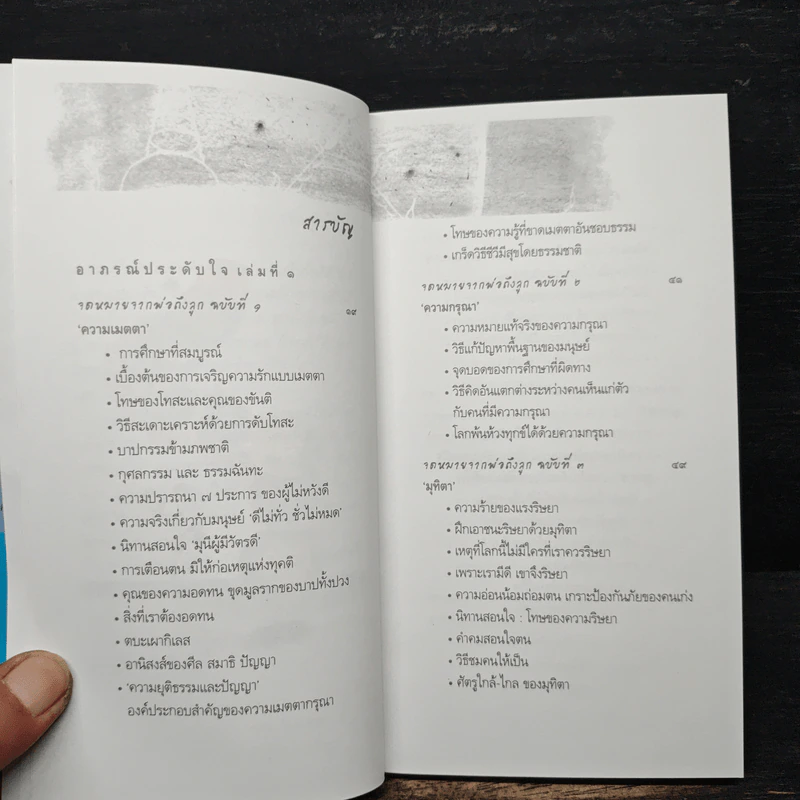 สารบัญ
อาภรณ์ประดับใจ เล่มที่ ๑
จดหมายจากพ่อถึงลูก ฉบับที่ ๑ ๑๙
‘ความเมตตา’
• การศึกษาที่สมบูรณ์
• เบื้องต้นของการเจริญความรักแบบเมตตา
• โทษของโทสะและคุณของขันติ
• วิธีสะเดาะเคราะห์ด้วยการดับโทสะ
• บาปกรรมข้ามภพชาติ
• กุศลกรรม และ ธรรมฉันทะ
• ความปรารถนา ๗ ประการ ของผู้ไม่หวังดี
• ความจริงเกี่ยวกับมนุษย์ ‘ดีไม่ทั่ว ชั่วไม่หมด’
• นิทานสอนใจ ‘มุนีผู้มีวัตรดี’
• การเตือนตน มิให้ก่อเหตุแห่งทุคติ
• คุณของความอดทน ขุดมูลรากของบาปทั้งปวง
• สิ่งที่เราต้องอดทน
• ตบะเผากิเลส
• อานิสงส์ของศีล สมาธิ ปัญญา
• ‘ความยุติธรรมและปัญญา’
องค์ประกอบสำคัญของความเมตตากรุณา
• โทษของความรู้ที่ขาดเมตตาอันชอบธรรม
• เกร็ดวิธีชีวีมีสุขโดยธรรมชาติ
จดหมายจากพ่อถึงลูก ฉบับที่ ๒ ๔๑
‘ความกรุณา’
• ความหมายแท้จริงของความกรุณา
• วิธีแก้ปัญหาพื้นฐานของมนุษย์
• จุดบอดของการศึกษาที่ผิดทาง
• วิธีคิดอันแตกต่างระหว่างคนเห็นแก่ตัว
กับคนที่มีความกรุณา
• โลกพ้นห้วงทุกข์ได้ด้วยความกรุณา
จดหมายจากพ่อถึงลูก ฉบับที่ ๓ ๔๙
‘มุทิตา’
• ความร้ายของแรงริษยา
• ฝึกเอาชนะริษยาด้วยมุทิตา
• เหตุที่โลกนี้ไม่มีใครที่เราควรริษยา
• เพราะเรามีดี เขาจึงริษยา
• ความอ่อนน้อมถ่อมตน เกราะป้องกันภัยของคนเก่ง
• นิทานสอนใจ : โทษของความริษยา
• คำคมสอนใจตน
• วิธีชมคนให้เป็น
• ศัตรูใกล้-ไกล ของมุทิตา